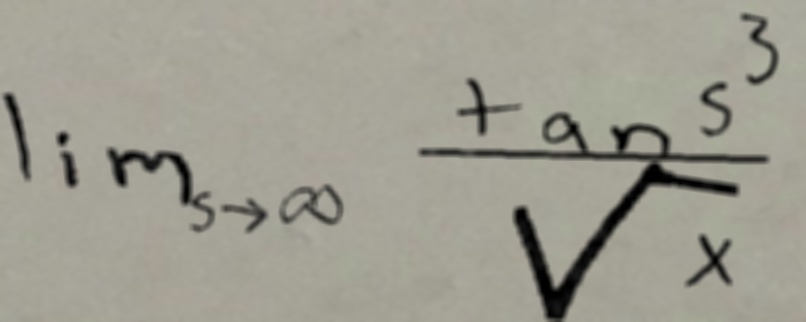 lim_{s→∞} \frac{tan s^3}{\sqrt{x}}